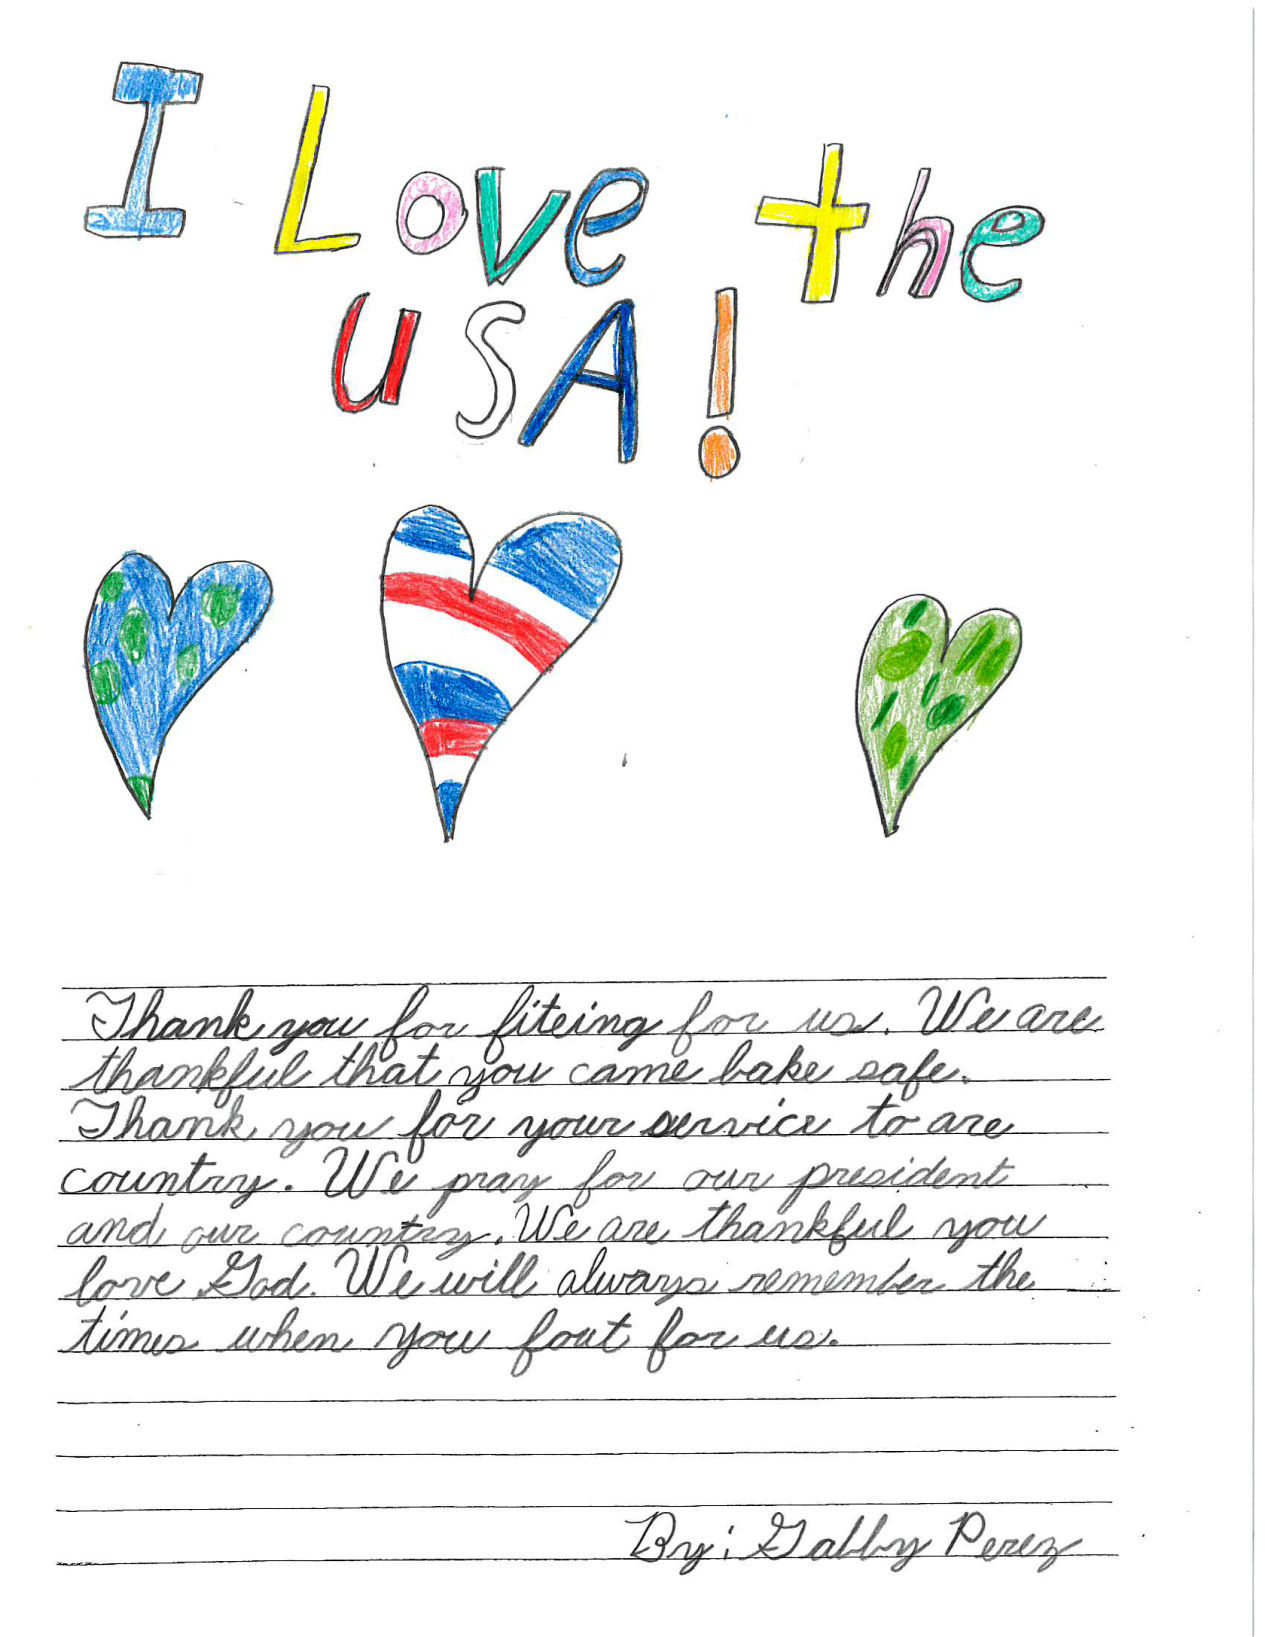 I Love the
USA!
Thank you for fiteing for us. We are
thankful that you came bake safe.
Thank you for your service to are
country. We pray for our president
and our country. We are thankful you
love God. We will always remember the
times when you fout for us.
By: Gabby Perez